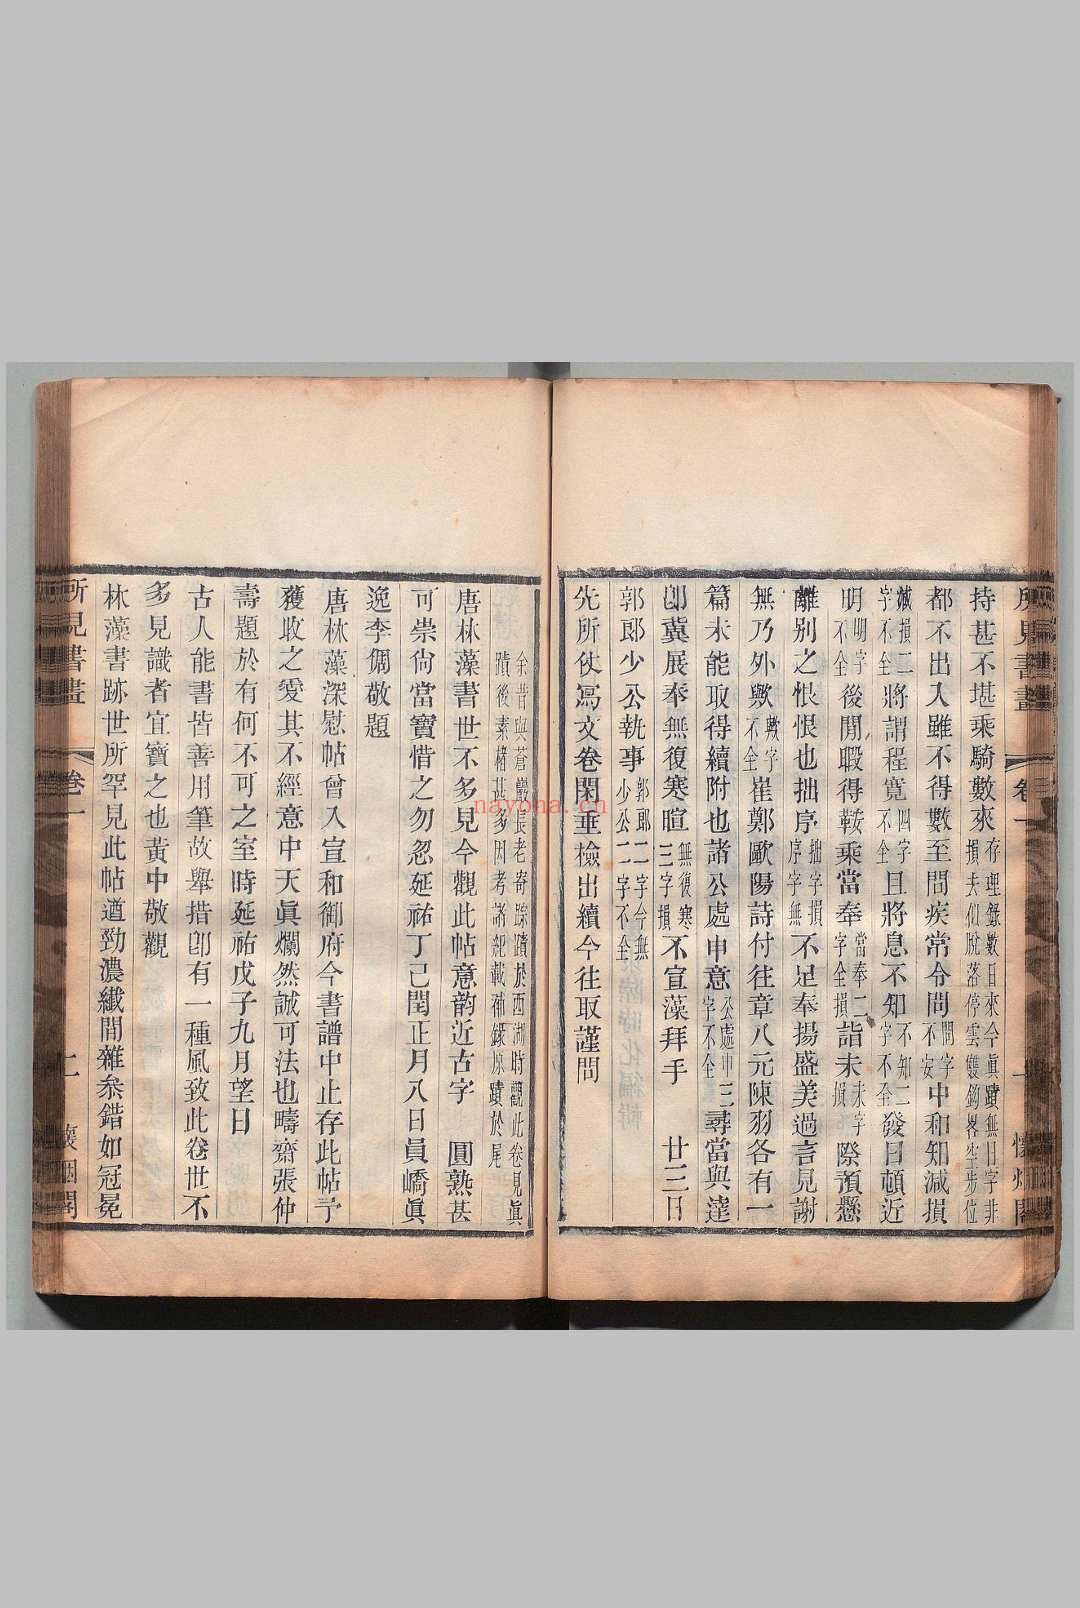 持甚不堪乘騎數來存理錄數日來今眞蹟無日字非損去似脫落停雲雙鉤畧空步位
都不出入雖不得數至問疾常令問問字不安中和知減損
減損二字不全將謂程寬四字不全且將息不知不知二字不全發日頓近
明明字不全後閒暇得鞍乘當奉當奉二字全損詣未未字損際預懸
離别之恨恨也拙序拙字損序字無不足奉揚盛美過言見謝
無乃外歟歟字不全崔鄭歐陽詩付往章八元陳羽各有一
篇未能取得續附也諸公處申意公處申字不全三尋當與達
卽冀展奉無復寒暄無復寒三字損不宣藻拜手 廿三日
郭郎少公執事郭郎少公二字今無二字不全
先所伏寫文卷閑垂檢出續令往取謹問
余昔與蒼巖長老寄踪蹟於西湖時觀此卷見眞蹟後素楮甚多因考諸紀載補錄原蹟於尾
唐林藻書世不多見今觀此帖意韵近古字 圓熟甚
可崇尙當寶惜之勿忽延祐丁己閏正月八日員嶠眞
逸李倜敬題
唐林藻深慰帖曾入宣和御府今書譜中止存此帖予
獲收之愛其不經意中天眞爛然誠可法也疇齋張仲
壽題於有何不可之室時延祐戊子九月望日
古人能書皆善用筆故舉措卽有一種風致此卷世不
多見識者宜寶之也黃中敬觀
林藻書跡世所罕見此帖遒勁濃纖間雜叅錯如冠冕
所見書畫 卷一
nayona.cn